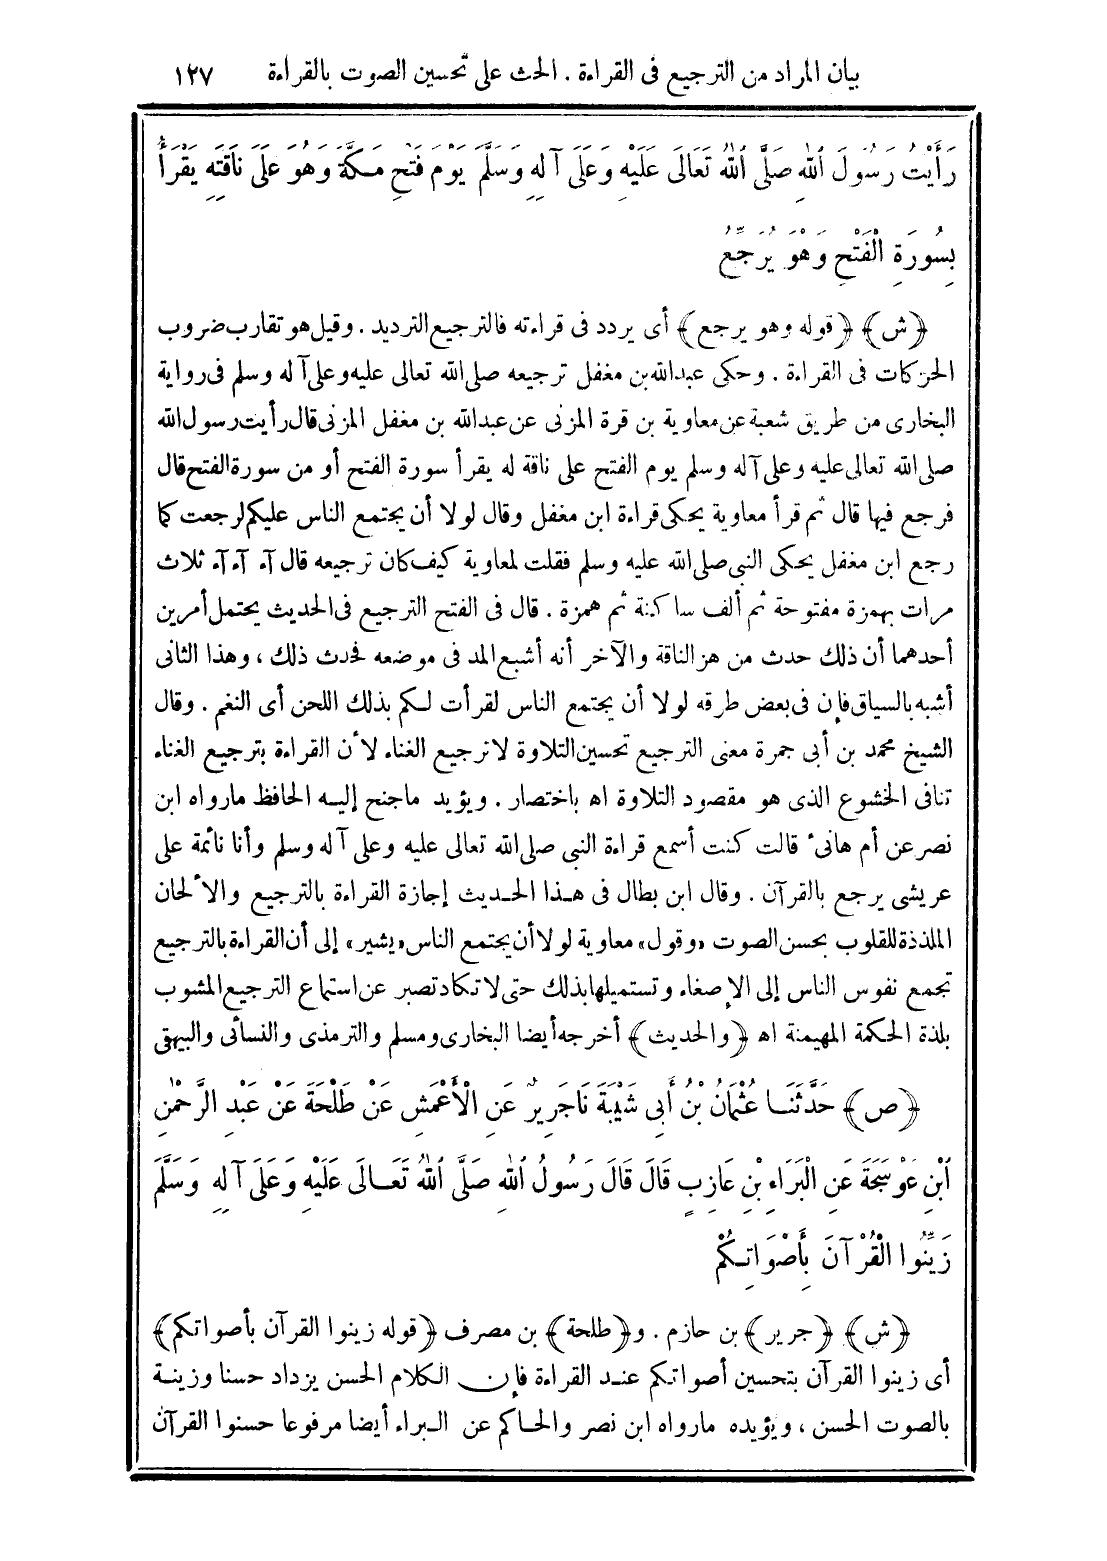 بيان المراد من الترجيع فى القراءة . الحث على تحسين الصوت بالقراءة ١٢٧
رَأَيْتُ رَسُولَ اللهِ صَلَّى اللهُ تَعَالَى عَلَيْهِ وَعَلَى آلِهِ وَسَلَّمَ يَوْمَ فَتْحِ مَكَّةَ وَهُوَ عَلَى نَاقَتِهِ يَقْرَأُ
بِسُورَةِ الْفَتْحِ وَهْوَ يُرَجِّعُ
﴿ش﴾ ﴿قوله وهو يرجع﴾ أى يردد فى قراءته فالترجيع الترديد . وقيل هو تقارب ضروب
الحركات فى القراءة . وحكى عبد الله بن مغفل ترجيعه صلى الله تعالى عليه وعلى آله وسلم فى رواية
البخارى من طريق شعبة عن معاوية بن قرة المزنى عن عبد الله بن مغفل المزنى قال رأيت رسول الله
صلى الله تعالى عليه وعلى آله وسلم يوم الفتح على ناقة له يقرأ سورة الفتح أو من سورة الفتح قال
فرجع فيها قال ثم قرأ معاوية يحكى قراءة ابن مغفل وقال لولا أن يجتمع الناس عليكم لرجعت كما
رجع ابن مغفل يحكى النبى صلى الله عليه وسلم فقلت لمعاوية كيف كان ترجيعه قال آء آء آء ثلاث
مرات بهمزة مفتوحة ثم ألف ساكنة ثم همزة . قال فى الفتح الترجيع فى الحديث يحتمل أمرين
أحدهما أن ذلك حدث من هز الناقة والآخر أنه أشبع المد فى موضعه فحدث ذلك ، وهذا الثانى
أشبه بالسياق فإن فى بعض طرقه لولا أن يجتمع الناس لقرأت لكم بذلك اللحن أى النغم . وقال
الشيخ محمد بن أبى جمرة معنى الترجيع تحسين التلاوة لا ترجيع الغناء لأن القراءة بترجيع الغناء
تنافى الخشوع الذى هو مقصود التلاوة اه باختصار . ويؤيد ماجنح إليه الحافظ مارواه ابن
نصر عن أم هانىء قالت كنت أسمع قراءة النبى صلى الله تعالى عليه وعلى آله وسلم وأنا نائمة على
عريشى يرجع بالقرآن . وقال ابن بطال فى هذا الحديث إجازة القراءة بالترجيع والألحان
الملذذة للقلوب بحسن الصوت «وقول» معاوية لولا أن يجتمع الناس «يشير» إلى أن القراءة بالترجيع
تجمع نفوس الناس إلى الإصغاء وتستميلها بذلك حتى لا تكاد تصبر عن استماع الترجيع المشوب
بلذة الحكمة المهيمنة اه ﴿والحديث﴾ أخرجه أيضا البخارى ومسلم والترمذى والنسائى والبيهقى
﴿ص﴾ حَدَّثَنَا عُثْمَانُ بْنُ أَبِى شَيْبَةَ نَا جَرِيرٌ عَنِ الْأَعْمَشِ عَنْ طَلْحَةَ عَنْ عَبْدِ الرَّحْمٰنِ
ابْنِ عَوْسَجَةَ عَنِ الْبَرَاءِ بْنِ عَازِبٍ قَالَ قَالَ رَسُولُ اللهِ صَلَّى اللهُ تَعَالَى عَلَيْهِ وَعَلَى آلِهِ وَسَلَّمَ
زَيِّنُوا الْقُرْآنَ بِأَصْوَاتِكُمْ
﴿ش﴾ ﴿جرير﴾ بن حازم . و﴿طلحة﴾ بن مصرف ﴿قوله زينوا القرآن بأصواتكم﴾
أى زينوا القرآن بتحسين أصواتكم عند القراءة فإن الكلام الحسن يزداد حسنا وزينة
بالصوت الحسن ، ويؤيده مارواه ابن نصر والحاكم عن البراء أيضا مرفوعا حسنوا القرآن